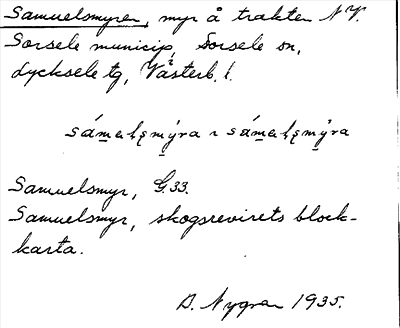 Samuelsmyren, myr å trakten N V.
Sorsele municip, Sorsele sn,
Lycksele tg, Västerb. l.
sámalęmýra ~ sámalęmýra
Samuelsmyr, G.33.
Samuelsmyr, skogsrevirets block-
karta.
D. Nygren 1935.